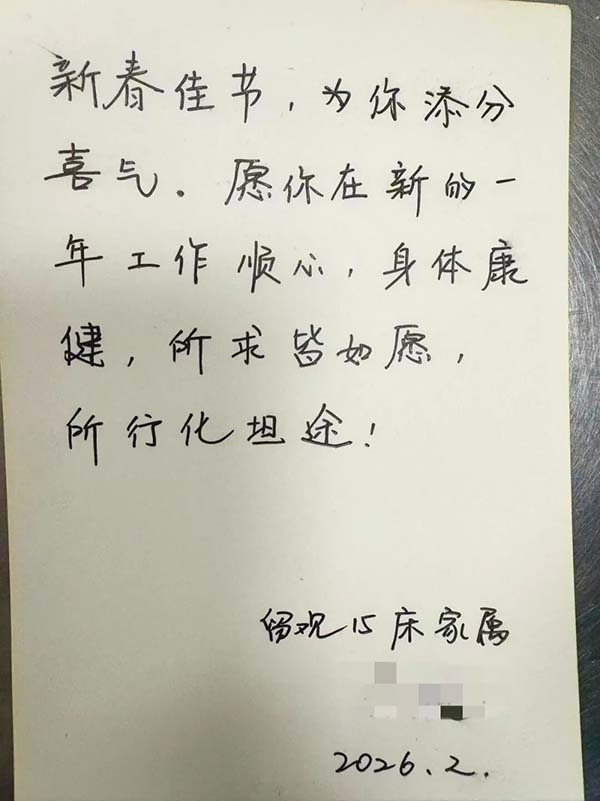 新春佳节，为你添分
喜气。愿你在新的一
年工作顺心，身体康
健，所求皆如愿，
所行化坦途！
留观15床家属
2026.2.